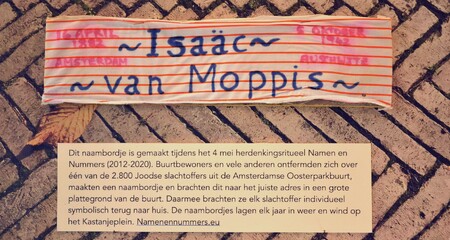 APRIL
AMSTERDAM
~Isaäc~
~van Moppis~
5 OKTOBER
1942
AUSCHWITZ
Dit naambordje is gemaakt tijdens het 4 mei herdenkingsritueel Namen en
Nummers (2012-2020). Buurtbewoners en vele anderen ontfermden zich over
één van de 2.800 Joodse slachtoffers uit de Amsterdamse Oosterparkbuurt,
maakten een naambordje en brachten dit naar het juiste adres in een grote
plattegrond van de buurt. Daarmee brachten ze elk slachtoffer individueel
symbolisch terug naar huis. De naambordjes lagen elk jaar in weer en wind op
het Kastanjeplein. Namenennummers.eu